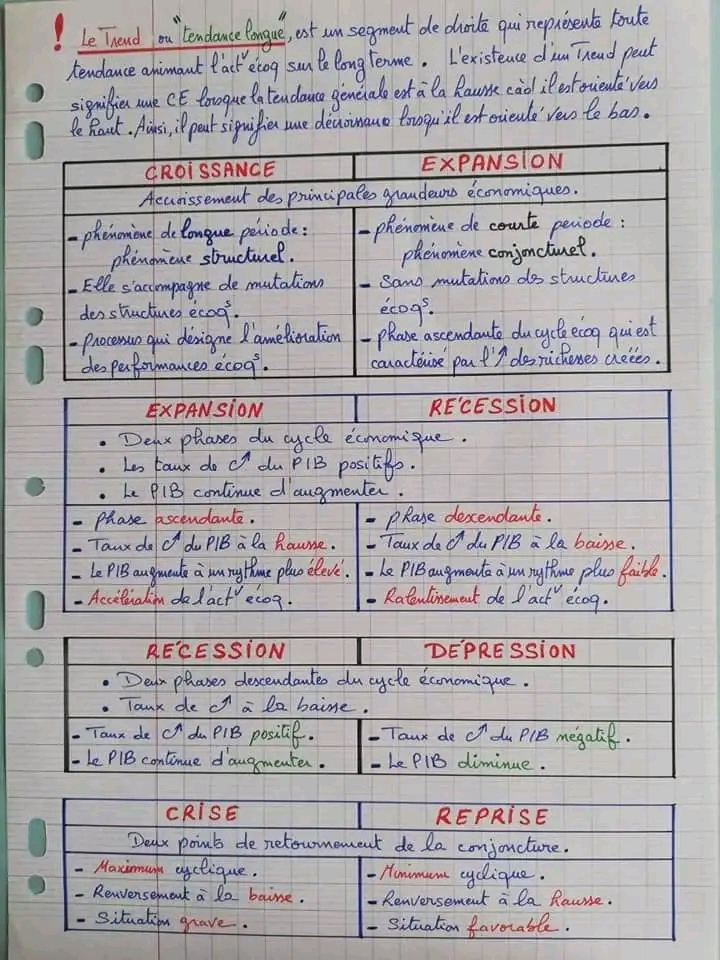 ! Le Trend ou "tendance longue", est un segment de droite qui représente toute
tendance animant l'actᵛ écoq sur le long terme. L'existence d'un Trend peut
signifier une CE lorsque la tendance générale est à la hausse càd il est orienté vers
le haut. Ainsi, il peut signifier une décroissance lorsqu'il est orienté vers le bas.
CROISSANCE EXPANSION
Accroissement des principales grandeurs économiques.
- phénomène de longue période : - phénomène de courte periode :
phénomène structurel. phénomène conjoncturel.
- Elle s'accompagne de mutations - Sans mutations des structures
des structures écoqˢ. écoqˢ.
- processus qui désigne l'amélioration - phase ascendante du cycle écoq qui est
des performances écoqˢ. caractérisé par l'↗ des richesses créées.
EXPANSION RÉCESSION
• Deux phases du cycle économique.
• Les taux de c↗ du PIB positifs.
• Le PIB continue d'augmenter.
- Phase ascendante. - phase descendante.
- Taux de c↗ du PIB à la hausse. - Taux de c↗ du PIB à la baisse.
- Le PIB augmente à un rythme plus élevé. - Le PIB augmente à un rythme plus faible.
- Accélération de l'actᵛ écoq. - Ralentissement de l'actᵛ écoq.
RÉCESSION DÉPRESSION
• Deux phases descendantes du cycle économique.
• Taux de c↗ à la baisse.
- Taux de c↗ du PIB positif. - Taux de c↗ du PIB négatif.
- Le PIB continue d'augmenter. - Le PIB diminue.
CRISE REPRISE
Deux points de retournement de la conjoncture.
- Maximum cyclique. - Minimum cyclique.
- Renversement à la baisse. - Renversement à la hausse.
- Situation grave. - Situation favorable.